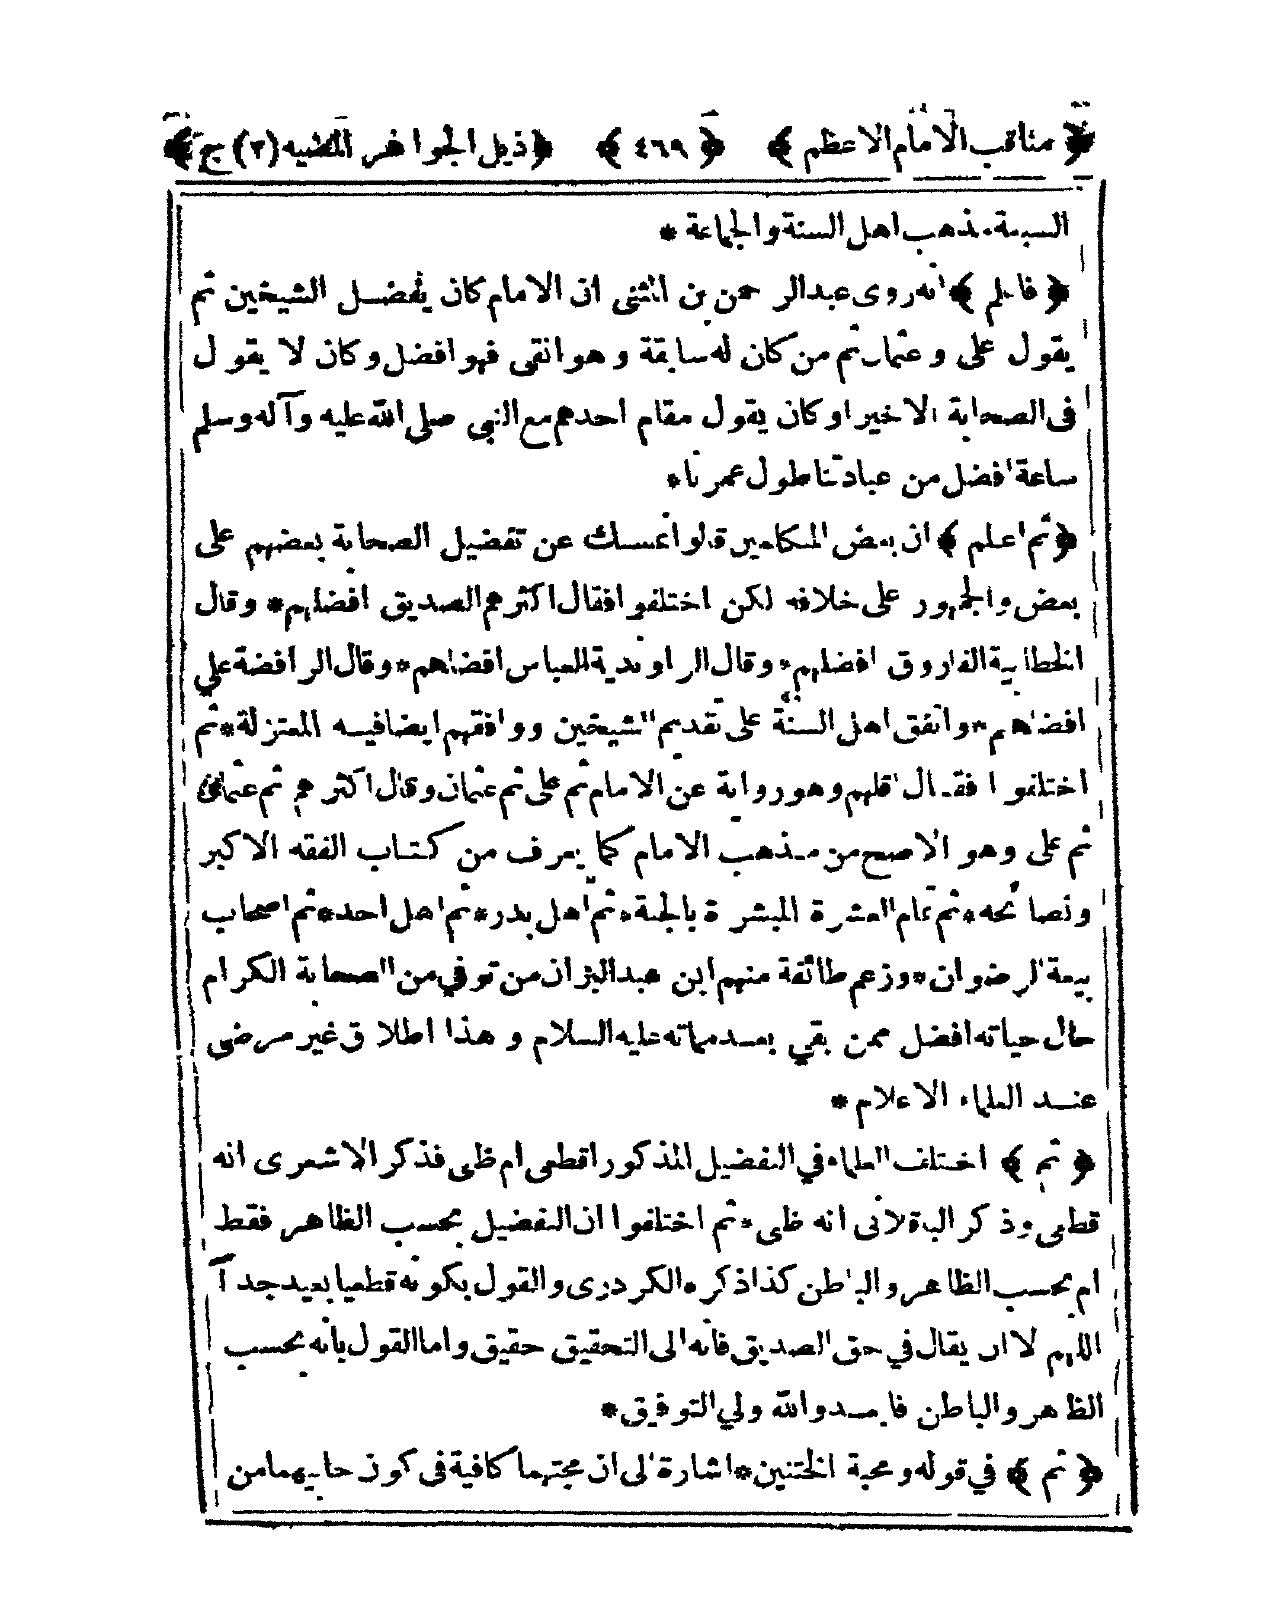 ﴿ مناقب الامام الاعظم ﴾ ﴿ ٤٦٩ ﴾ ﴿ ذيل الجواهر المضيه (٢) ج ﴾
مذهب اهل السنة والجماعة *
﴿ فاعلم ﴾ انه روى عبد الرحمن بن المثنى ان الامام كان يفضل الشيخين ثم
يقول على وعثمان ثم من كان له سابقة وهو اتقى فهو افضل وكان لا يقول
فى الصحابة الا خيرا وكان يقول مقام احدهم مع النبى صلى الله عليه وآله وسلم
ساعة افضل من عبادتنا طول عمرنا *
﴿ ثم اعلم ﴾ ان بعض المتكلمين قالوا نمسك عن تفضيل الصحابة بعضهم على
بعض والجمهور على خلافه لكن اختلفوا فقال اكثرهم الصديق افضلهم * وقال
الخطابية الفاروق افضلهم * وقال الراوندية العباس افضلهم * وقال الرافضة علي
افضلهم * واتفق اهل السنة على تقديم الشيخين ووافقهم ايضا فيه المعتزلة * ثم
اختلفوا فقال اقلهم وهو رواية عن الامام ثم على ثم عثمان وقال اكثرهم ثم عثمان
ثم على وهو الاصح من مذهب الامام كما يعرف من كتاب الفقه الاكبر
ونصائحه * ثم تمام العشرة المبشرة بالجنة * ثم اهل بدر * ثم اهل احد * ثم اصحاب
بيعة الرضوان * وزعم طائفة منهم ابن عبد البر ان من توفي من الصحابة الكرام
حال حياته افضل ممن بقي بعد مماته عليه السلام وهذا اطلاق غير مرضى
عند العلماء الاعلام *
﴿ ثم ﴾ اختلف العلماء في التفضيل المذكور اقطعى ام ظنى فذكر الاشعرى انه
قطعى وذكر الباقلانى انه ظنى * ثم اختلفوا ان التفضيل بحسب الظاهر فقط
ام بحسب الظاهر والباطن كذا ذكره الكردرى والقول بكونه قطعيا بعيد جدآ
اللهم لا ان يقال في حق الصديق فانه الى التحقيق حقيق واما القول بانه بحسب
الظاهر والباطن فابعد والله ولي التوفيق *
﴿ ثم ﴾ في قوله ومحبة الختنين * اشارة الى ان محبتهما كافية فى كون حابيهما من